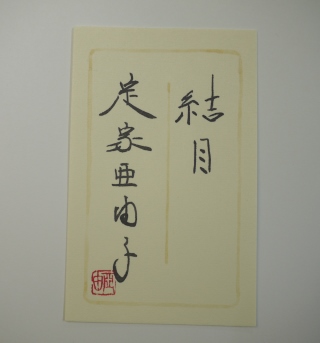 結目
足家亜由子